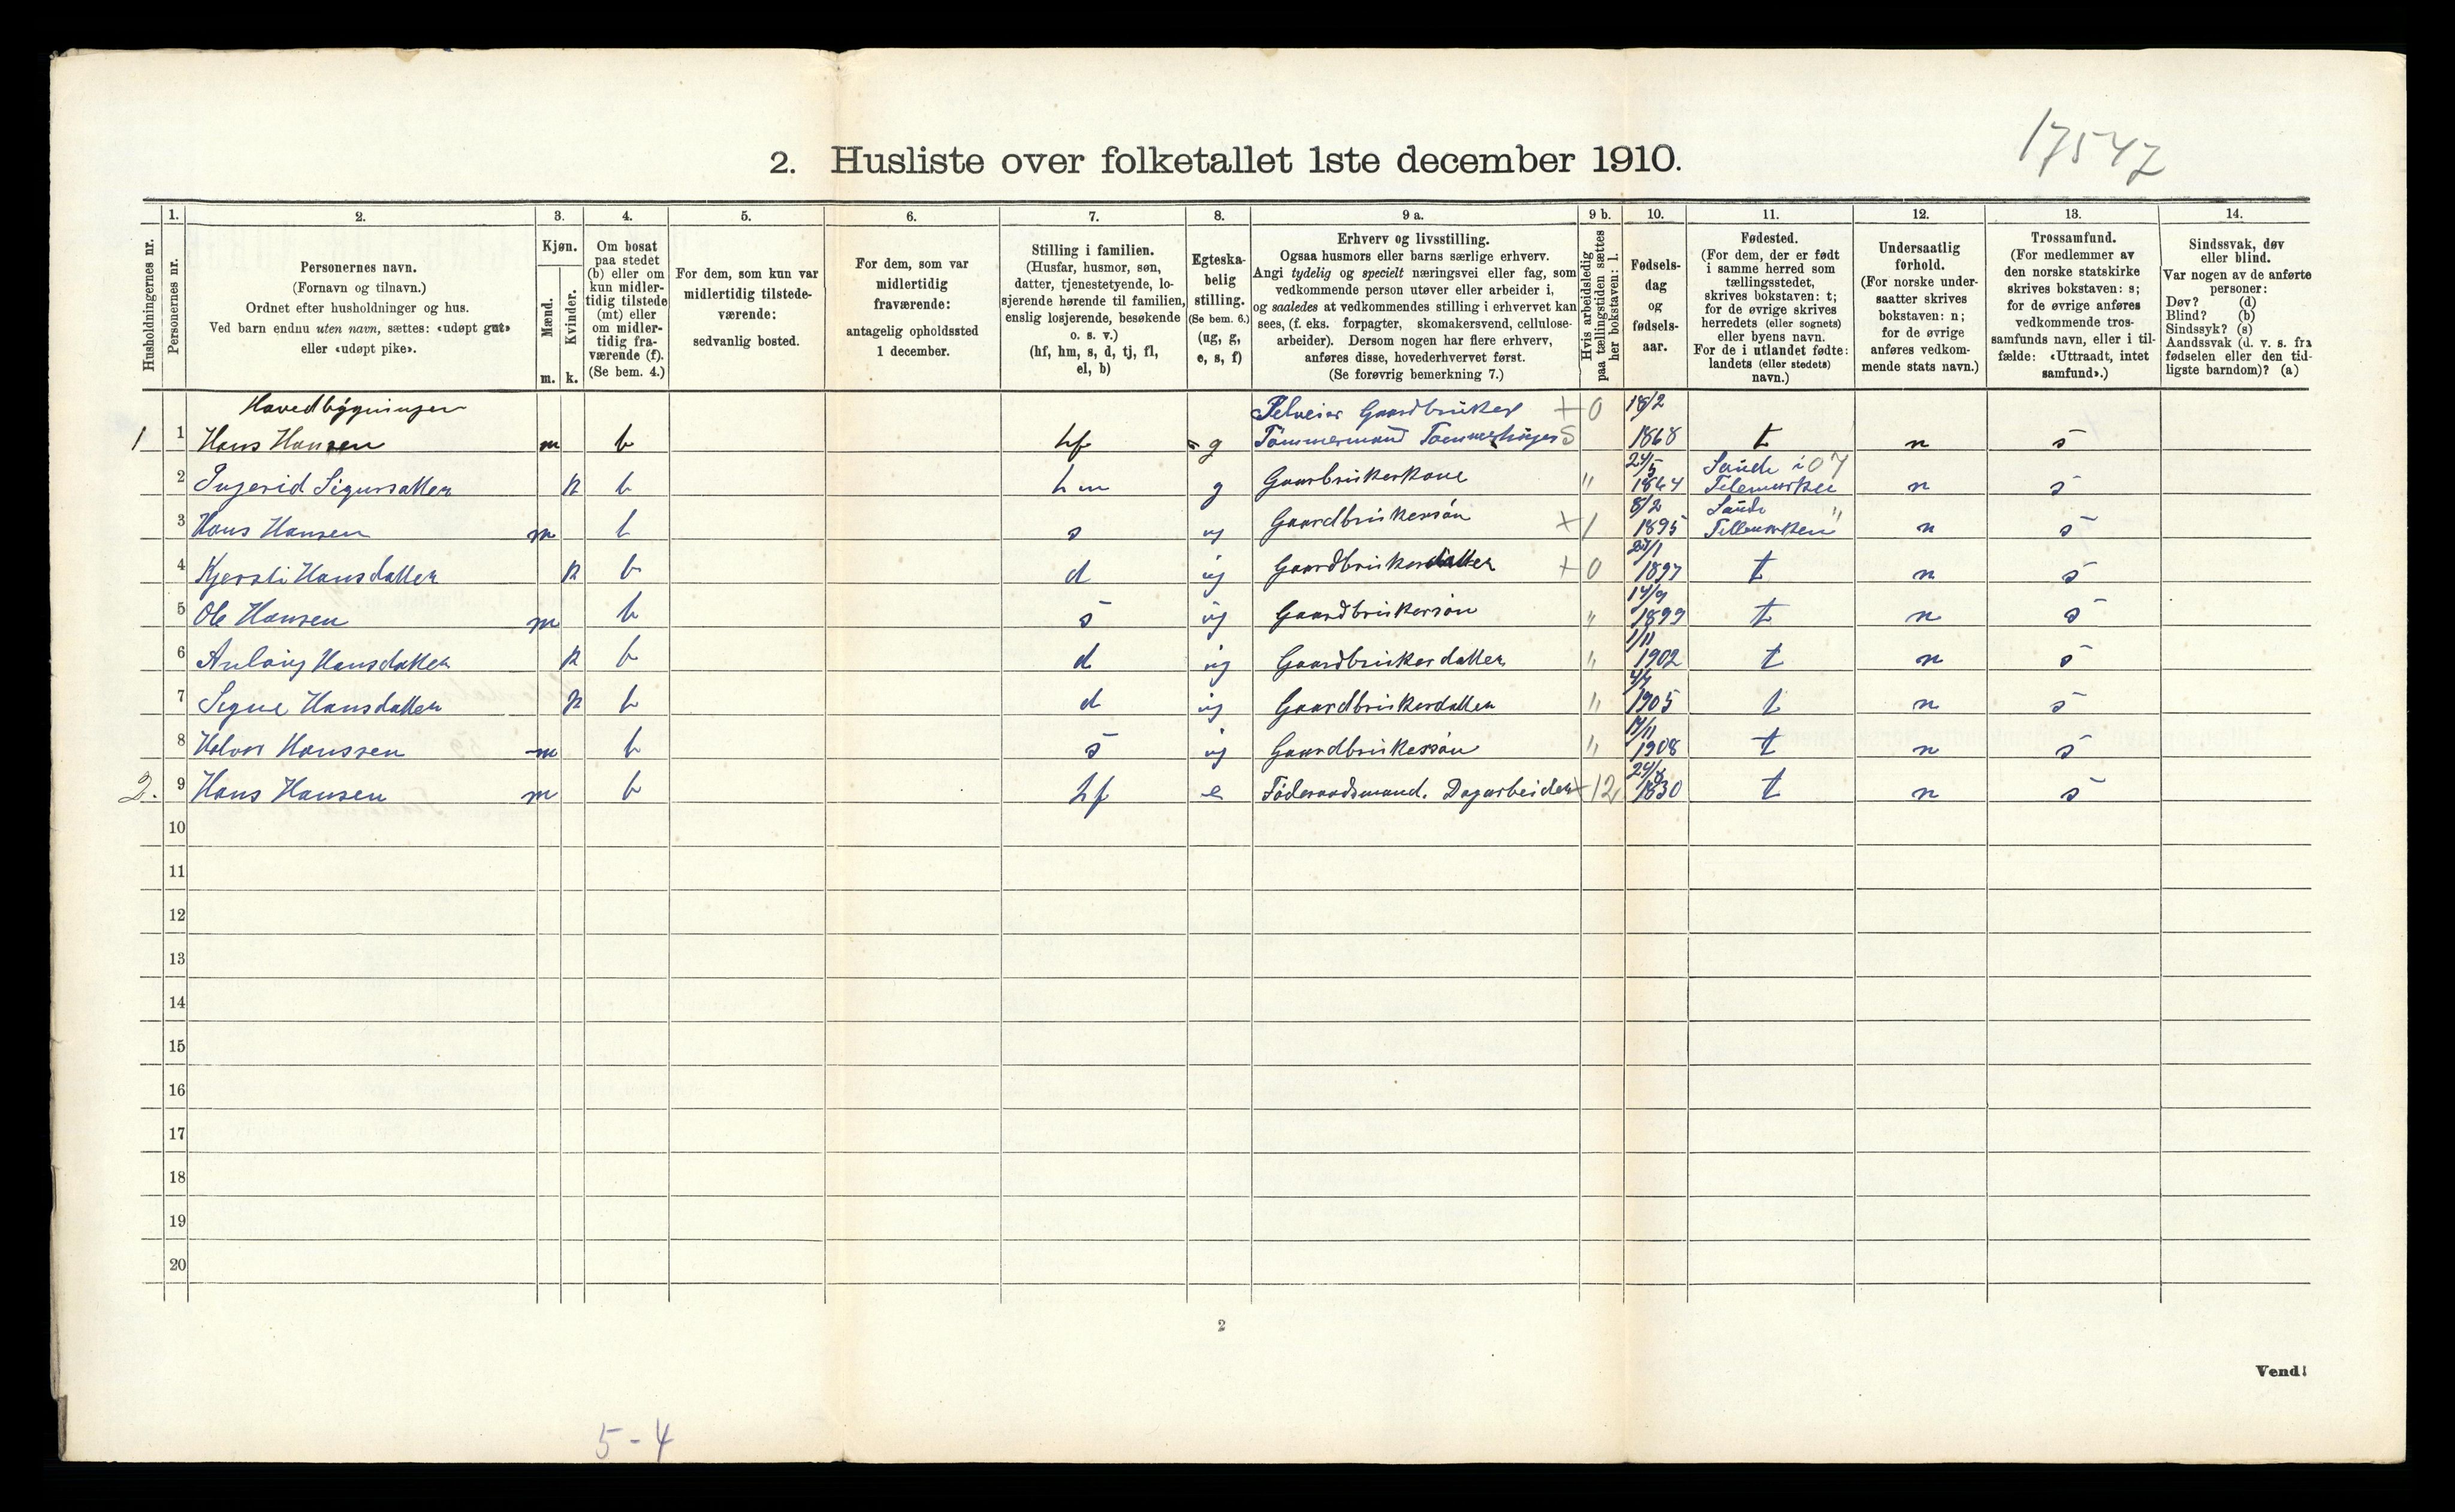 17547
2. Husliste over folketallet 1ste december 1910.
Husholdningernes nr.
1.
Personernes nr.
2.
Personernes navn.
(Fornavn og tilnavn.)
Ordnet efter husholdninger og hus.
Ved barn endnu uten navn, sættes: «udøpt gut»
eller «udøpt pike».
3.
Kjøn.
Mænd.
m.
Kvinder.
k.
4.
Om bosat
paa stedet
(b) eller om
kun midler-
tidig tilstede
(mt) eller
om midler-
tidig fra-
værende (f).
(Se bem. 4.)
5.
For dem, som kun var
midlertidig tilstede-
værende:
sedvanlig bosted.
6.
For dem, som var
midlertidig
fraværende:
antagelig opholdssted
1 december.
7.
Stilling i familien.
(Husfar, husmor, søn,
datter, tjenestetyende, lo-
sjerende hørende til familien,
enslig losjerende, besøkende
o. s. v.)
(hf, hm, s, d, tj, fl,
el, b)
8.
Egteska-
belig
stilling.
(Se bem. 6.)
(ug, g,
e, s, f)
9 a.
Erhverv og livsstilling.
Ogsaa husmors eller barns særlige erhverv.
Angi tydelig og specielt næringsvei eller fag, som
vedkommende person utøver eller arbeider i,
og saaledes at vedkommendes stilling i erhvervet kan
sees, (f. eks. forpagter, skomakersvend, cellulose-
arbeider). Dersom nogen har flere erhverv,
anføres disse, hovederhvervet først.
(Se forøvrig bemerkning 7.)
9 b.
Hvis arbeidsledig
paa tællingstiden sættes
her bokstaven: l.
10.
Fødsels-
dag
og
fødsels-
aar.
11.
Fødested.
(For dem, der er født
i samme herred som
tællingsstedet,
skrives bokstaven: t;
for de øvrige skrives
herredets (eller sognets)
eller byens navn.
For de i utlandet fødte:
landets (eller stedets)
navn.)
12.
Undersaatlig
forhold.
(For norske under-
saatter skrives
bokstaven: n;
for de øvrige
anføres vedkom-
mende stats navn.)
13.
Trossamfund.
(For medlemmer av
den norske statskirke
skrives bokstaven: s;
for de øvrige anføres
vedkommende tros-
samfunds navn, eller i til-
fælde: «Uttraadt, intet
samfund».)
14.
Sindssvak, døv
eller blind.
Var nogen av de anførte
personer:
Døv? (d)
Blind? (b)
Sindssyk? (s)
Aandssvak (d. v. s. fra
fødselen eller den tid-
ligste barndom)? (a)
Hovedbygningen Selveier Gaardbruker + 0 18/2
1 1 Hans Hansen m b hf g Tømmermand 5 1868 t n s
24/5 Saude i 07
2 Ingerid k b hm g Gaarbrukerkone " 1864 Telemarken n s
8/2 Saude "
3 Hans Hansen m b s ug Gaardbrukersøn + 1 1895 Tellemarken n s
4 Kjersti Hansdatter k b d ug Gaardbrukerdatter + 0 1897 t n s
14/9
5 Ole Hansen m b s ug Gaardbrukersøn " 1899 t n s
1/11
6 Anlaug Hansdatter k b d ug Gaardbrukerdatter " 1902 t n s
7 Signe Hansdatter k b d ug Gaardbrukerdatter " 1905 t n s
8 Halvor Hanssen m b s ug Gaardbrukersøn " 1908 t n s
24/8
2. 9 Hans Hansen m b hf e Föderaadsmand. Dagarbeider + 12 1830 t n s
10
11
12
13
14
15
16
17
18
19
20
2
Vend!
5-4